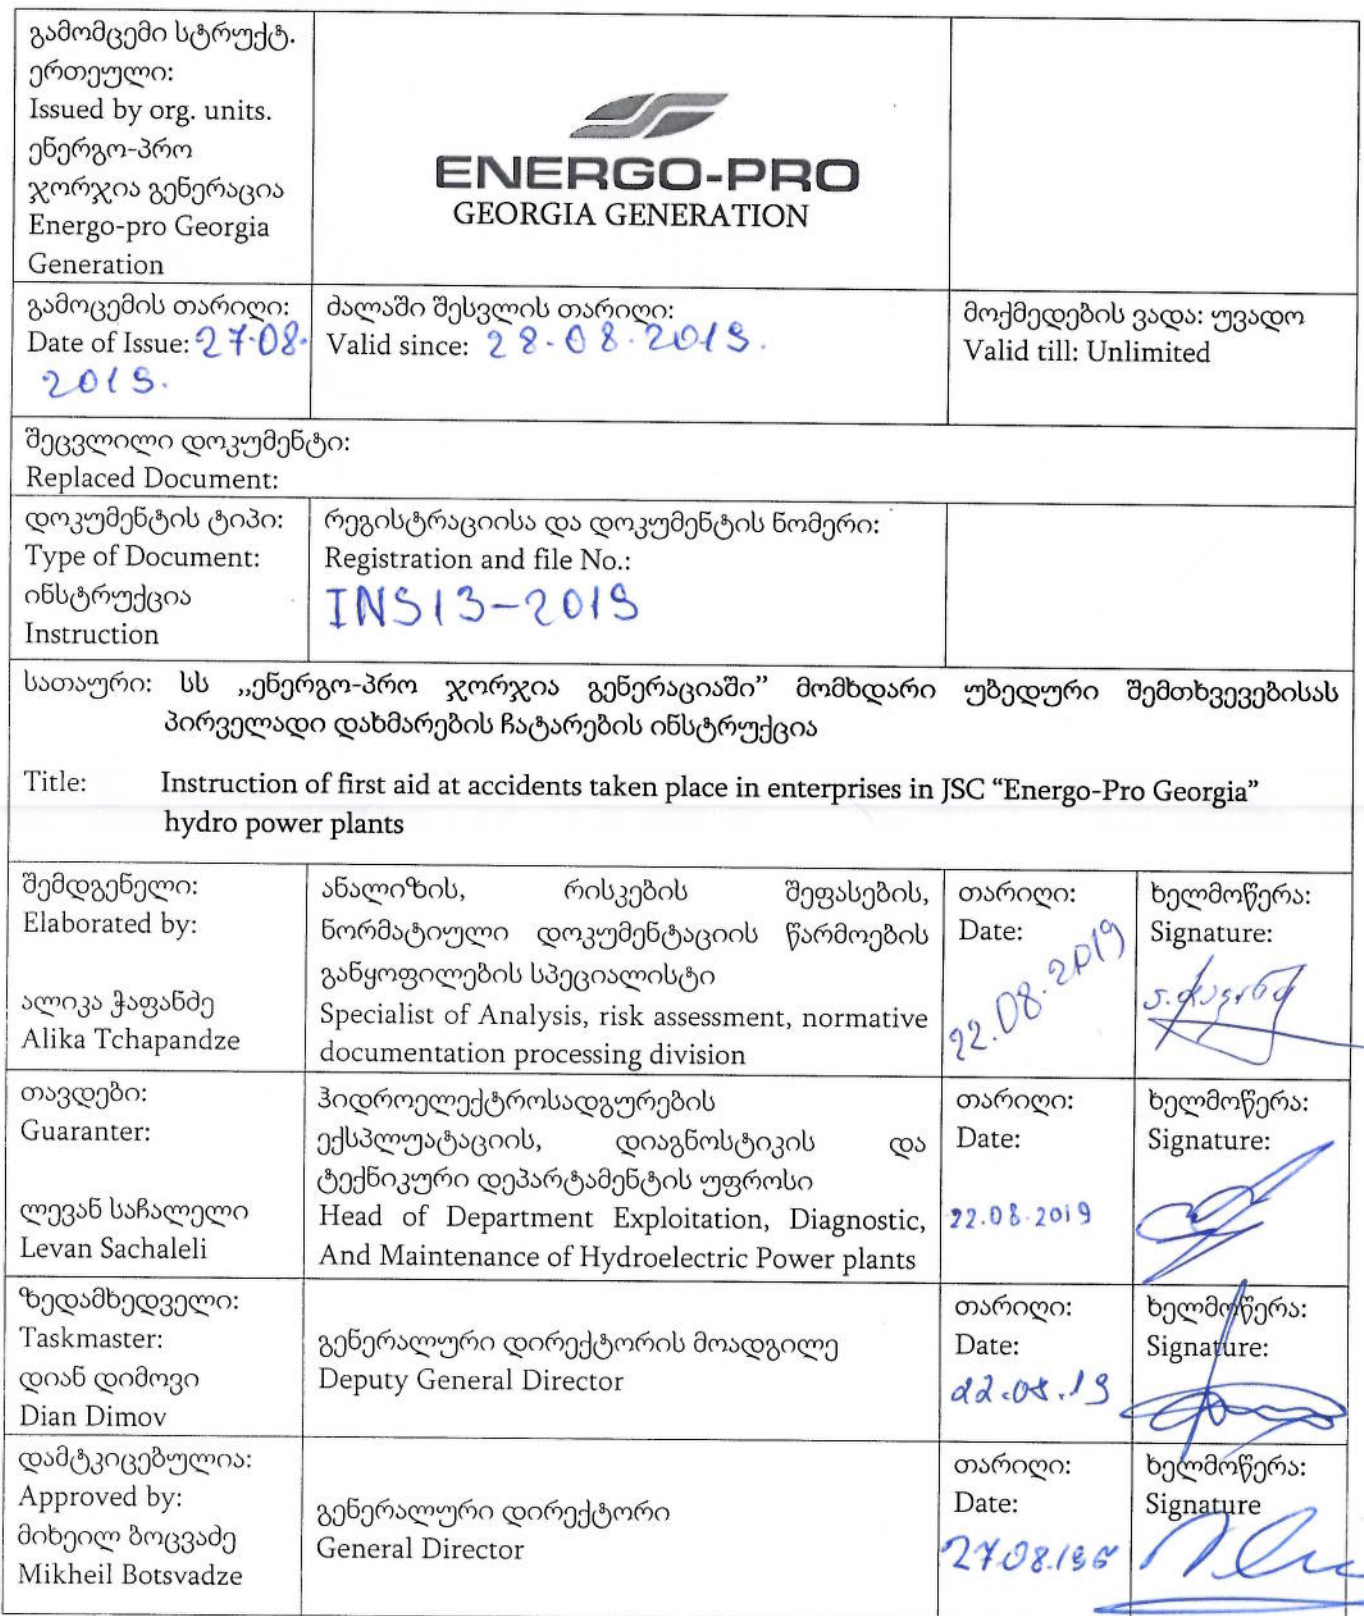 გამომცემი სტრუქტ.
ერთეული:
Issued by org. units.
ენერგო-პრო
ჯორჯია გენერაცია
Energo-pro Georgia
Generation
ENERGO-PRO
GEORGIA GENERATION
გამოცემის თარიღი:
Date of Issue: 27.08.
2019.
ძალაში შესვლის თარიღი:
Valid since: 28.08.2019.
მოქმედების ვადა: უვადო
Valid till: Unlimited
შეცვლილი დოკუმენტი:
Replaced Document:
დოკუმენტის ტიპი:
Type of Document:
ინსტრუქცია
Instruction
რეგისტრაციისა და დოკუმენტის ნომერი:
Registration and file No.:
INS13-2019
სათაური: სს „ენერგო-პრო ჯორჯია გენერაციაში” მომხდარი უბედური შემთხვევებისას
პირველადი დახმარების ჩატარების ინსტრუქცია
Title: Instruction of first aid at accidents taken place in enterprises in JSC “Energo-Pro Georgia”
hydro power plants
შემდგენელი:
Elaborated by:
ალიკა ჭაფანძე
Alika Tchapandze
ანალიზის, რისკების შეფასების,
ნორმატიული დოკუმენტაციის წარმოების
განყოფილების სპეციალისტი
Specialist of Analysis, risk assessment, normative
documentation processing division
თარიღი:
Date:
22.08.2019
ხელმოწერა:
Signature:
თავდები:
Guaranter:
ლევან საჩალელი
Levan Sachaleli
ჰიდროელექტროსადგურების
ექსპლუატაციის, დიაგნოსტიკის და
ტექნიკური დეპარტამენტის უფროსი
Head of Department Exploitation, Diagnostic,
And Maintenance of Hydroelectric Power plants
თარიღი:
Date:
22.08.2019
ხელმოწერა:
Signature:
ზედამხედველი:
Taskmaster:
დიან დიმოვი
Dian Dimov
გენერალური დირექტორის მოადგილე
Deputy General Director
თარიღი:
Date:
22.08.19
ხელმოწერა:
Signature:
დამტკიცებულია:
Approved by:
მიხეილ ბოცვაძე
Mikheil Botsvadze
გენერალური დირექტორი
General Director
თარიღი:
Date:
ხელმოწერა:
Signature